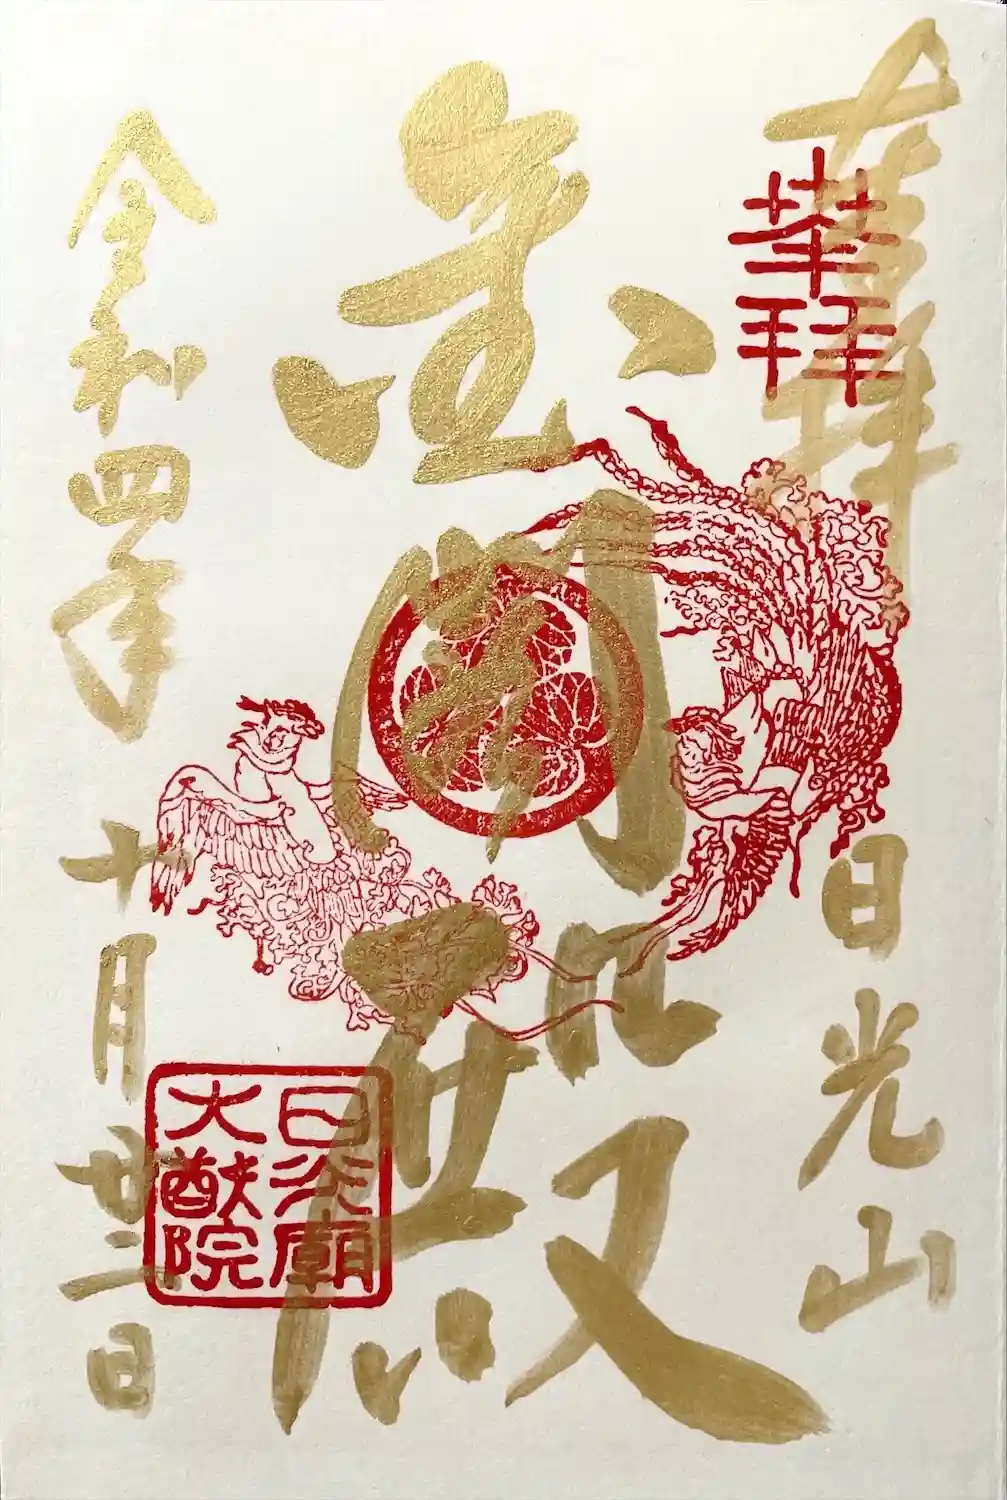 奉拝
奉拝
日光山
金閣殿
日光廟
大猷院
令和四年
十月廿二日